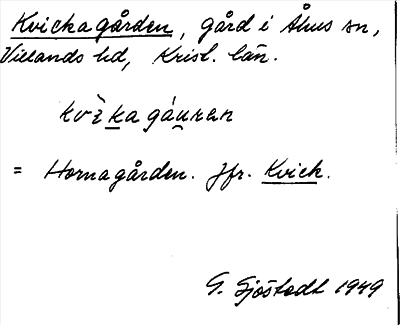 Kvickagården, gård i Åhus sn,
Villands hd, Krist. län.
kvìkagáuṷran
= Hornagården. Jfr. Kvick.
G. Sjöstedt 1949